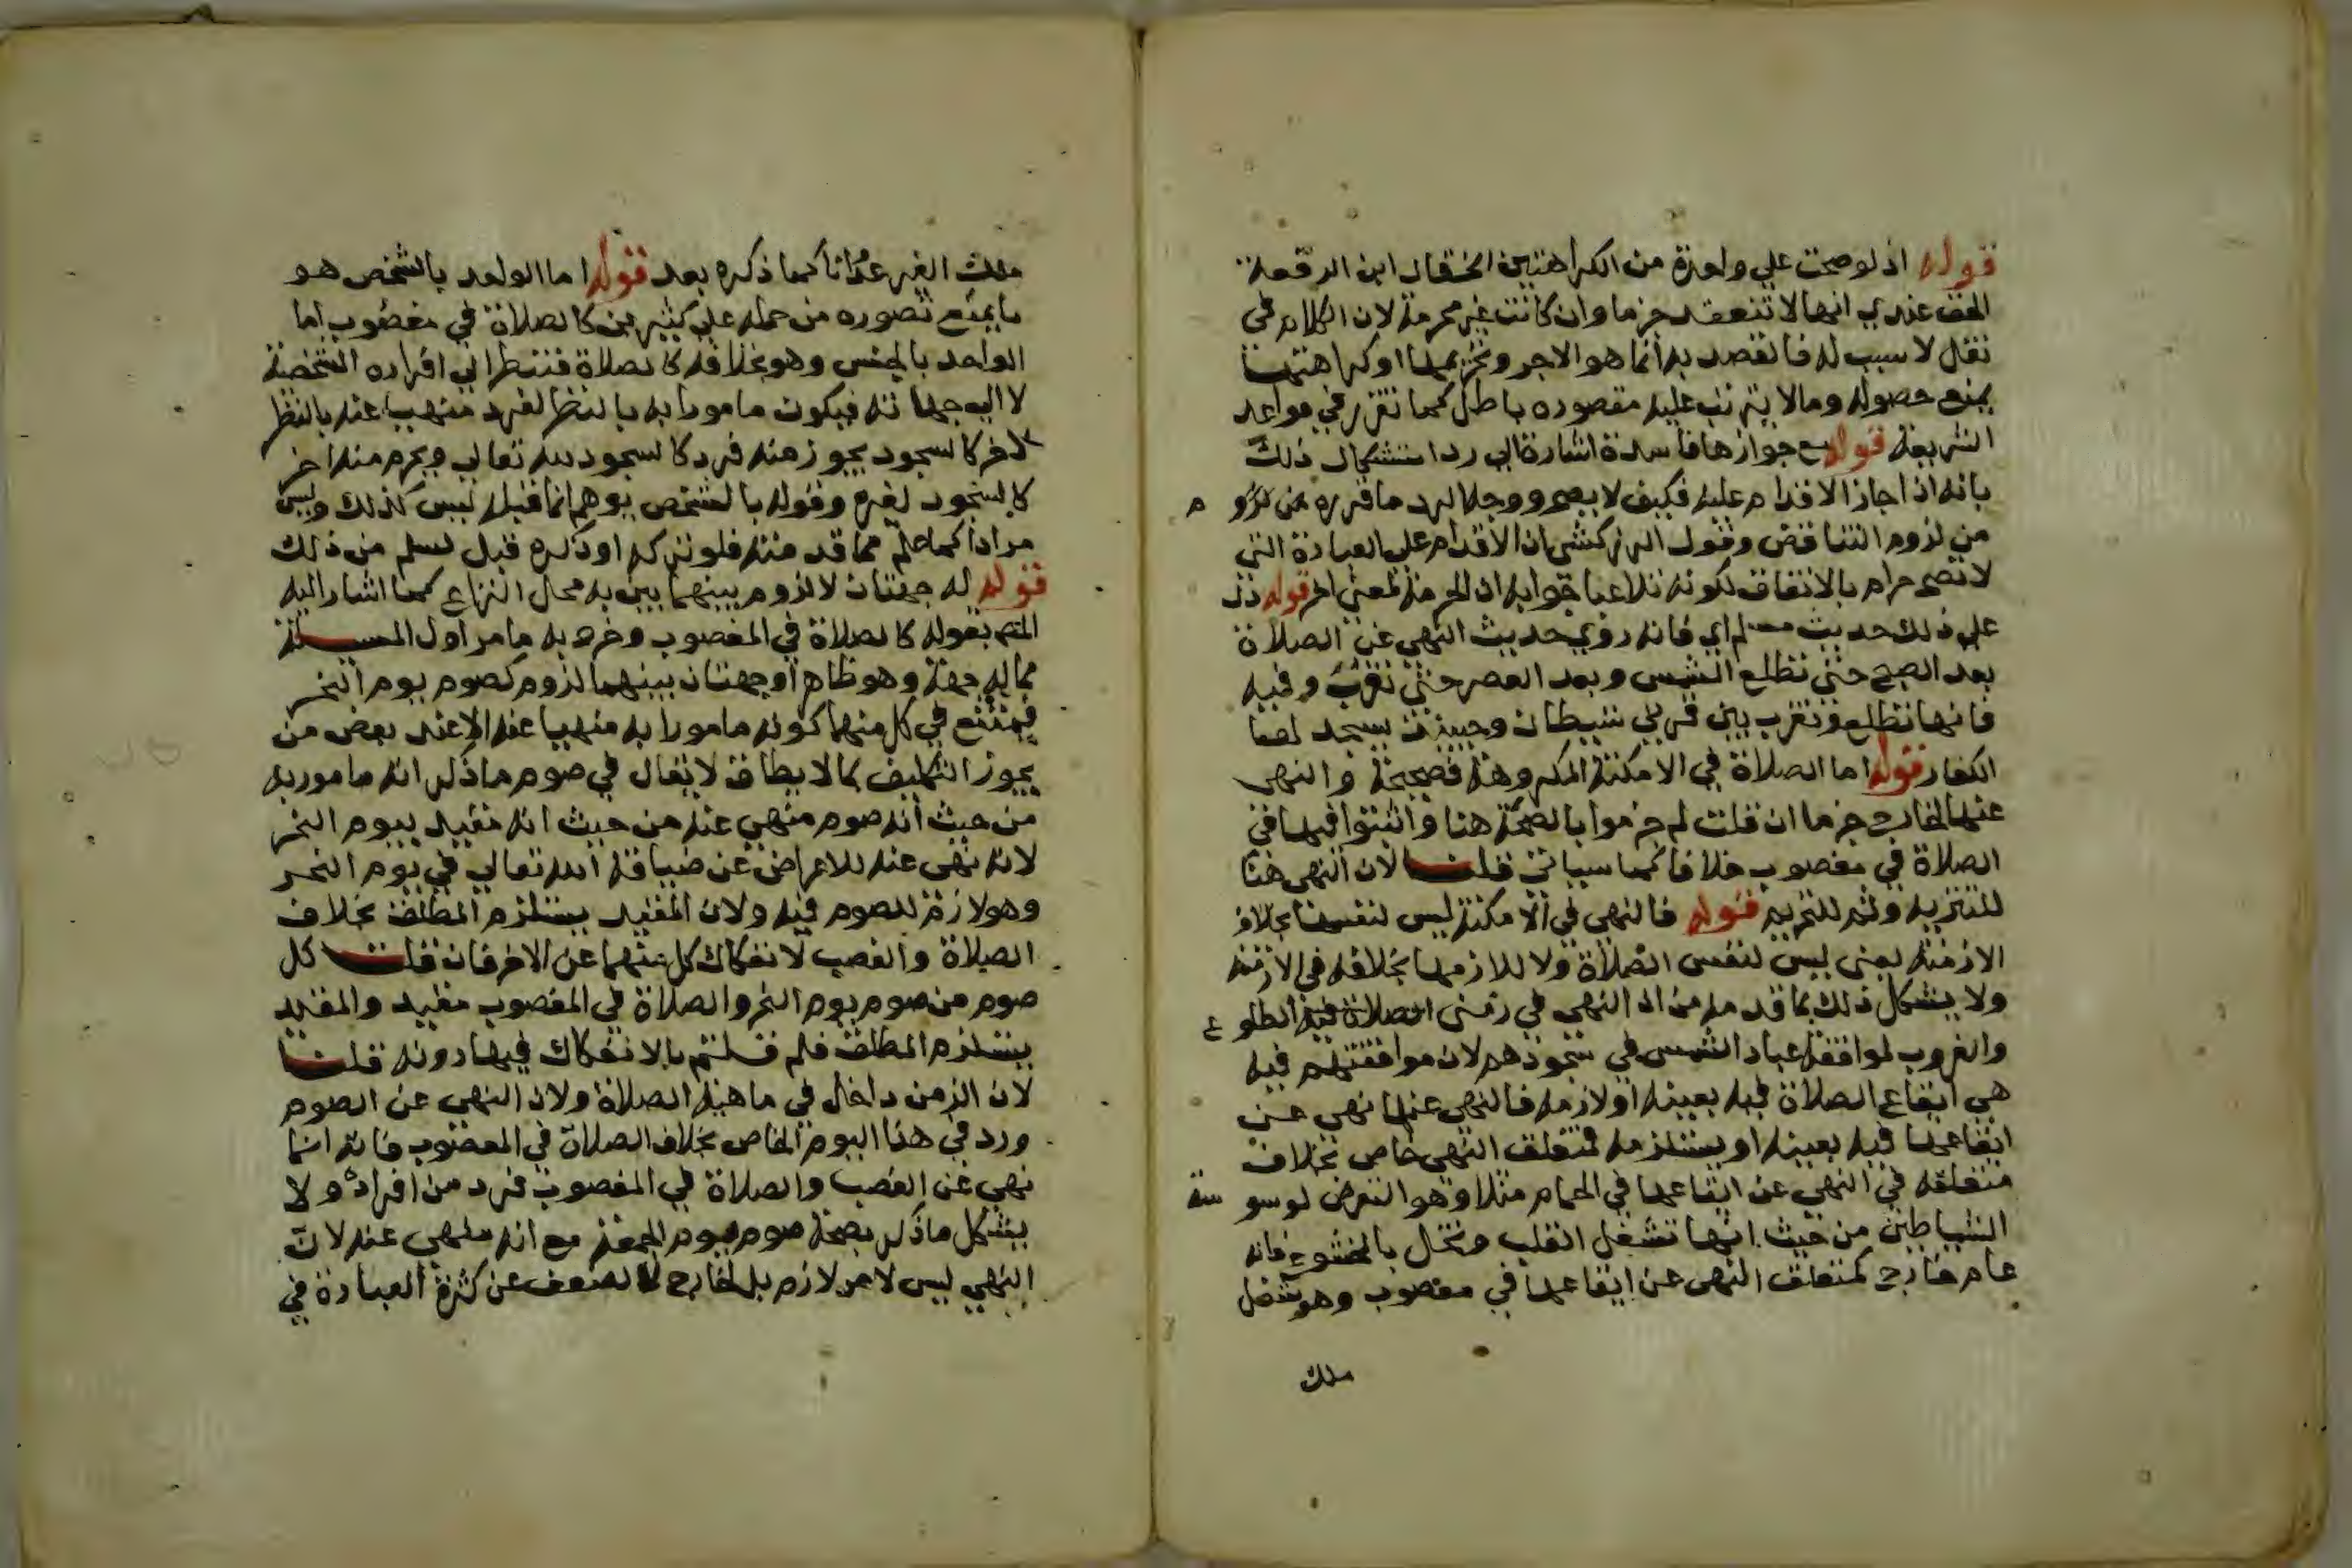 قوله اذ لو صحت علي واحدة من الكراهتين الخ قال ابن الرفعة
الحق عندي انها لا تنعقد جزما وان كانت غير محرمة لان الكلام في
نفل لا سبب له فالقصد به انما هو الاجر وتحريمها او كراهتها
يمنع حصوله وما لا يترتب عليه مقصوده باطل كما تقرر في قواعد
الشريعة قوله مع جوازها فاسدة اشارة الي رد استشكال ذلك
بانه اذا جاز الاقدام عليه فكيف لا يصح ووجه الرد ما قرره من لزوم
من لزوم التناقض وقول الزركشي ان الاقدام علي العبادة التي
لا تصح حرام بالاتفاق لكونه تلاعبا جوابه ان الحرمة لمعني اخر قوله دل
علي ذلك حديث مسلم اي فانه روي حديث النهي عن الصلاة
بعد الصبح حتي تطلع الشمس وبعد العصر حتي تغرب وفيه
فانها تطلع وتغرب بين قرني شيطان وحينئذ يسجد لها
الكفار قوله اما الصلاة في الامكنة المكروهة فصحيحة والنهي
عنها لخارج جزما ان قلت لم جزموا بالصحة هنا واثبتوا فيها في
الصلاة في مغصوب خلافا كما سياتي قلت لان النهي هنا
للتنزيه وثم للتحريم قوله فالنهي في الامكنة ليس لنفسها بخلاف
الازمنة يعني ليس لنفس الصلاة ولا للازمها بخلافه في الازمنة
ولا يشكل ذلك بما قدمه من ان النهي في زمني الصلاة فيه الطلوع
والغروب لموافقة عباد الشمس في سجودهم لان موافقتهم فيه
هي ايقاع الصلاة فيه بعينه او لازمه فالنهي عنها نهي عن
ايقاعها فيه بعينه او يستلزمه فمتعلق النهي خاص بخلاف
متعلقه في النهي عن ايقاعها في الحمام مثلا وهو التعرض لوسوسة
الشياطين من حيث انها تشغل القلب وتخل بالخشوع فانه
عام خارج كمتعلق النهي عن ايقاعها في مغصوب وهو شغل
ملك
ملك الغير عدوانا كما ذكره بعد قوله اما الواحد بالشخص هو
ما يمنع تصوره من حمله علي كثيرين كالصلاة في مغصوب اما
الواحد بالجنس وهو بخلافه كالصلاة فننظر الي افراده الشخصية
لا الي جهاته فيكون مامورا به بالنظر لفرد منهيا عنه بالنظر
لاخر كالسجود يجوز منه فرد كالسجود لله تعالي ويحرم منه اخر
كالسجود لغيره وقوله بالشخص يوهم انما قبله ليس كذلك وليس
مرادا كما علم مما قدمته فلو تركه او ذكره قبل لسلم من ذلك
قوله له جهتان لا لزوم بينهما بين به محل النزاع كما اشار اليه
المتم بقوله كالصلاة في المغصوب وخرج به ما مر اول المسئلة
مما له جهة وهو ظاهر او جهتان بينهما لزوم كصوم يوم النحر
فيمتنع في كل منهما كونه مامورا به منهيا عنه الا عند بعض من
يجوز التكليف بما لا يطاق لا يقال في صوم ما ذكر انه مامور به
من حيث انه صوم منهي عنه من حيث انه مقيد بيوم النحر
لانه نهي عنه للاعراض عن ضيافة الله تعالي في يوم النحر
وهو لازم للصوم فيه ولان المقيد يستلزم المطلق بخلاف
الصلاة والغصب لانفكاك كل منهما عن الاخر فان قلت كل
صوم من صوم يوم النحر والصلاة في المغصوب مقيد والمقيد
يستلزم المطلق فلم قلتم بالانفكاك فيها دونه قلت
لان الزمن داخل في ماهية الصلاة ولان النهي عن الصوم
ورد في هذا اليوم الخاص بخلاف الصلاة في المغصوب فانه انما
نهي عن الغصب والصلاة في المغصوب فرد من افراده ولا
يشكل ما ذكر بصحة صوم يوم الجمعة مع انه منهي عنه لان
النهي ليس لامر لازم بل لخارج كالضعف عن كثرة العبادة في